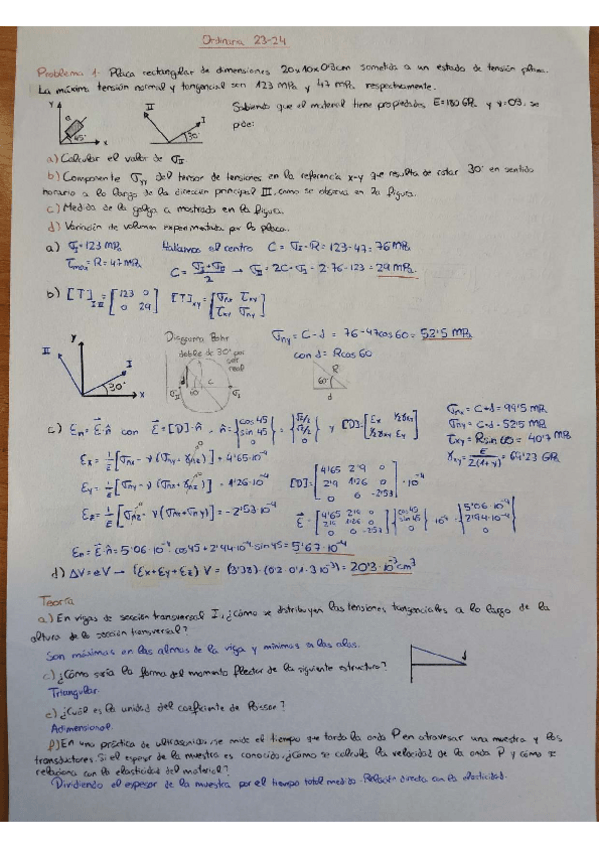 Ordinaria 23-24
Problema 1. Placa rectangular de dimensiones 20x10x0'3cm sometida a un estado de tensión plana.
La máxima tensión normal y tangencial son 123 MPa y 47 MPa respectivamente.
Sabiendo que el material tiene propiedades E=180GPa y ν=0'3, se
pide:
y
a
45°
x
II
I
30°
a) Calcular el valor de σII
b) Componente σyy del tensor de tensiones en la referencia x-y que resulta de rotar 30° en sentido
horario a lo largo de la dirección principal III, como se observa en la figura.
c) Medida de la galga a mostrada en la figura.
d) Variación de volumen experimentada por la placa.
a) σI = 123 MPa
τmax = R = 47 MPa
Hallamos el centro C = σI - R = 123-47 = 76 MPa
C = (σI + σII)/2 → σII = 2C - σI = 2·76-123 = 29 MPa.
b) [T] I II = [123 0 / 0 29] [T]xy = [σnx τxy / τxy σny]
II
y
I
30°
x
Diagrama Bohr
doble de 30° por
ser
real
σII
C
σI
σny = C-d = 76-47cos60 = 52'5 MPa
con d = Rcos60
R
60°
d
σnx = C+d = 99'5 MPa
σny = C-d = 52'5 MPa
τxy = Rsin60 = 40'7 MPa
γxy = E/2(1+ν) = 69'23 GPa
c) En = E·n̂ con E = [D]·n̂, n̂ = {cos45 / sin45 / 0} = {√2/2 / √2/2 / 0} y [D] = [Ex ½γxy / ½γxy Ey]
Ex = 1/E [σnx - ν(σny + σnz)] = 4'65·10⁻⁴
Ey = 1/E [σny - ν(σnx + σnz)] = 1'26·10⁻⁴
Ez = 1/E [σnz - ν(σnx + σny)] = -2'53·10⁻⁴
[D] = [4'65 2'9 0 / 2'9 1'26 0 / 0 0 -2'53]·10⁻⁴
E = [4'65 2'9 0 / 2'9 1'26 0 / 0 0 -2'53] {cos45 / sin45 / 0} 10⁻⁴ = {5'06·10⁻⁴ / 2'94·10⁻⁴ / 0}
En = E·n̂ = 5'06·10⁻⁴·cos45 + 2'94·10⁻⁴·sin45 = 5'67·10⁻⁴
d) ΔV = e·V → (Ex+Ey+Ez) V = (3'38)·(0'2·0'1·3·10⁻³) = 20'3·10⁻³cm³
Teoría
a) En vigas de sección transversal I, ¿cómo se distribuyen las tensiones tangenciales a lo largo de la
altura de la sección transversal?
Son máximas en las almas de la viga y mínimas en las alas.
c) ¿Cómo sería la forma del momento flector de la siguiente estructura?
Triangular.
d
e) ¿Cuál es la unidad del coeficiente de Poisson?
Adimensional.
f) En una práctica de ultrasonidos, se mide el tiempo que tarda la onda P en atravesar una muestra y los
transductores. Si el espesor de la muestra es conocido, ¿cómo se calcula la velocidad de la onda P y cómo se
relaciona con la elasticidad del material?
Dividiendo el espesor de la muestra por el tiempo total medido. Relación directa con la elasticidad.